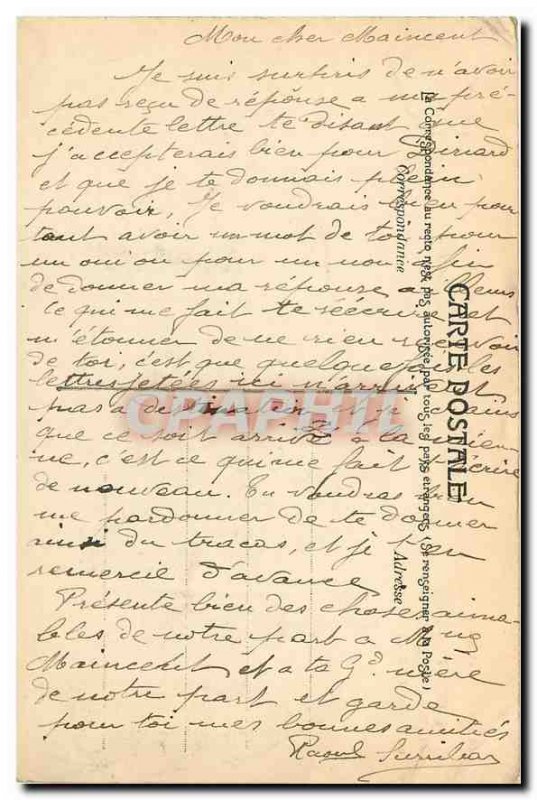 Mon cher Maincent
Je suis surpris de n'avoir
pas reçu de réponse a ma pré-
cédente lettre te disant que
j'accepterais bien pour Dinard
et que je te donnais plein
pouvoir, Je voudrais bien pour
tant avoir un mot de toi pour
un oui ou pour un non afin
de donner ma réponse ailleurs
Ce qui me fait te réécrire et
m'étonner de ne rien recevoir
de toi, c'est que quelquefois les
lettres jetées ici n'arrivent
pas a destination, et je crains
que ce soit arrivé à la mien-
ne, c'est ce qui me fait t'écrire
de nouveau. Tu voudras bien
me pardonner de te donner
ainsi du tracas, et je t'en
remercie d'avance
Présente bien des choses aima-
bles de notre part a
Maincent et a ta Gd mère
de notre part et garde
pour toi mes bonnes amitiés
Raoul
CARTE POSTALE
(La Correspondance au recto n'est pas autorisée par tous les pays étrangers (Se renseigner à la Poste)
Correspondance
Adresse
CPAPHIL